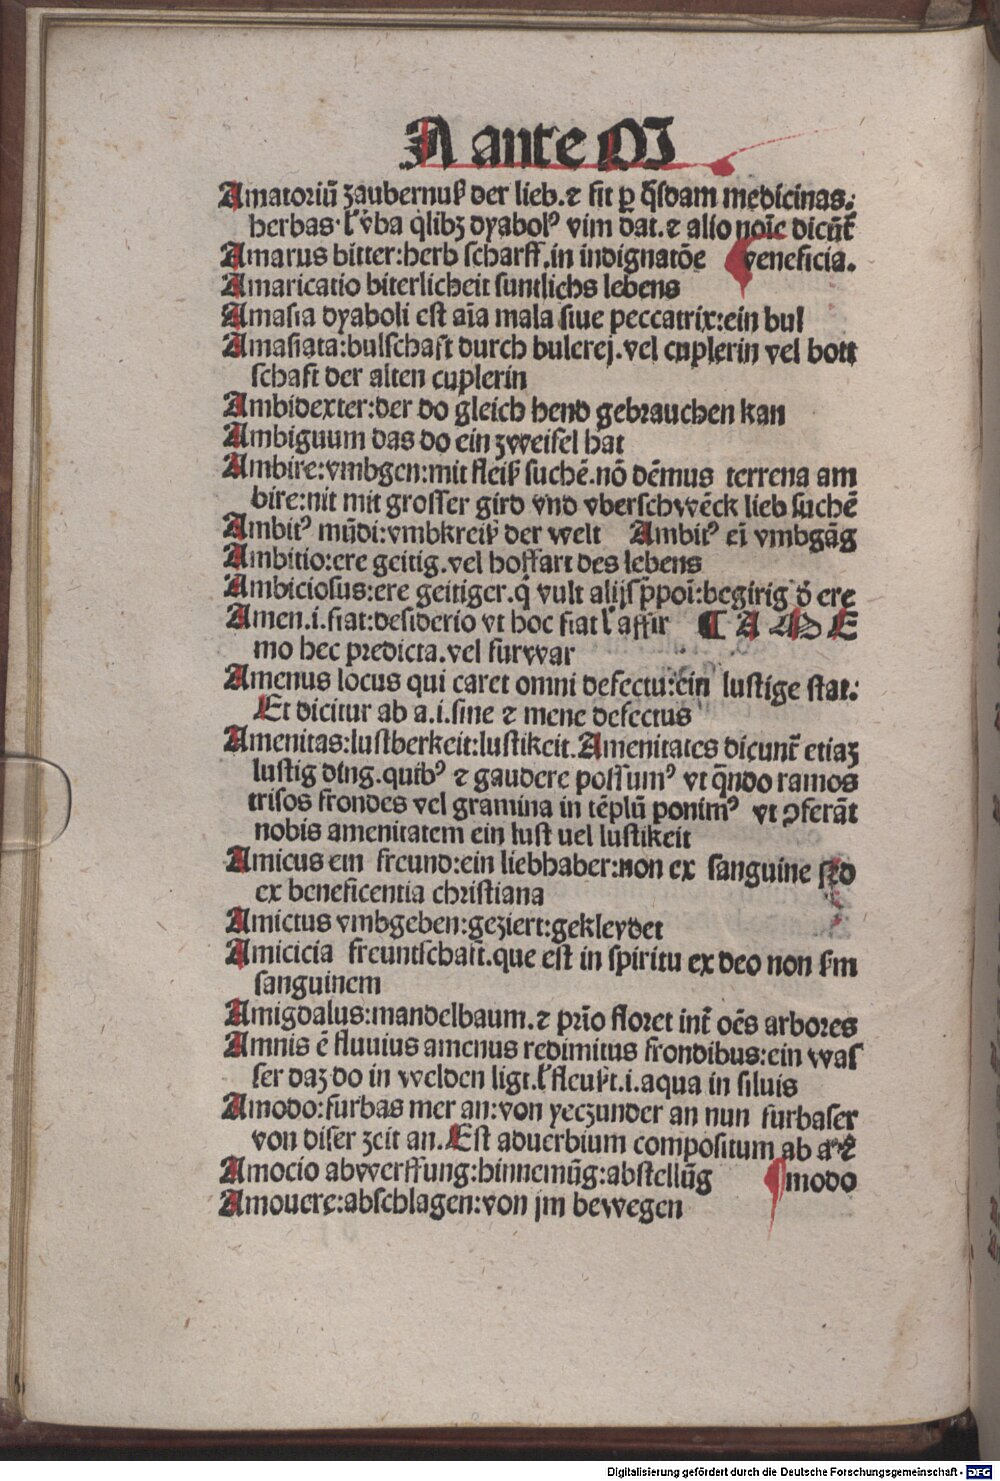 A ante M
Amatoriū zaubernuß der lieb.⁊ fit ꝑ q̄sdam medicinas.
herbas.ł v̄ba q̄libꝫ dyabolꝰ vim dat.⁊ alio noīe dicūt̄
Amarus bitter:herb scharff.in indignatōe veneficia.
Amaricatio biterlicheit suntlichs lebens
Amasia dyaboli est aīa mala siue peccatrix:ein bul
Amasiata:bulschaft durch bulerej.vel cuplerin vel bott
schaft der alten cuplerin
Ambidexter:der do gleich hend gebrauchen kan
Ambiguum das do ein zweifel hat
Ambire:vmbgen:mit fleiß suchē.nō dēmus terrena am
bire:nit mit grosser gird vnd vberschwēck lieb suchē
Ambitꝰ mūdi:vmbkreiß der welt Ambitꝰ eī vmbgāg
Ambitio:ere geitig.vel hoffart des lebens
Ambiciosus:ere geitiger.q̇ vult alijs p̄poī:begirig d̄ ere
Amen.i.fiat:desiderio vt hoc fiat ł affir ¶ A M E
mo hec predicta.vel furwar
Amenus locus qui caret omni defectu:ein lustige stat:
Et dicitur ab a.i.sine ⁊ mene defectus
Amenitas:lustberkeit:lustikeit.Amenitates dicunt̄ etiaꝫ
lustig ding.quibꝰ ⁊ gaudere possumꝰ vt q̄ndo ramos
trisos frondes vel gramina in tēplū ponimꝰ vt ꝓferāt
nobis amenitatem ein lust uel lustikeit
Amicus ein freund:ein liebhaber:non ex sanguine sed
ex beneficentia christiana
Amictus vmbgeben:geziert:gekleydet
Amicicia freuntschaft.que est in spiritu ex deo non fm
sanguinem
Amigdalus:mandelbaum.⁊ prīo floret int̄ oēs arbores
Amnis ē fluuius amenus redimitus frondibus:ein was
ser daz do in welden ligt.ł fleußt.i.aqua in siluis
Amodo:furbas mer an:von yeczunder an nun furbaser
von diser zeit an.Est aduerbium compositum ab a ⁊
Amocio abwerffung:hinnemūg:abstellūg modo
Amouere:abschlagen:von jm bewegen
Digitalisierung gefördert durch die Deutsche Forschungsgemeinschaft - DFG